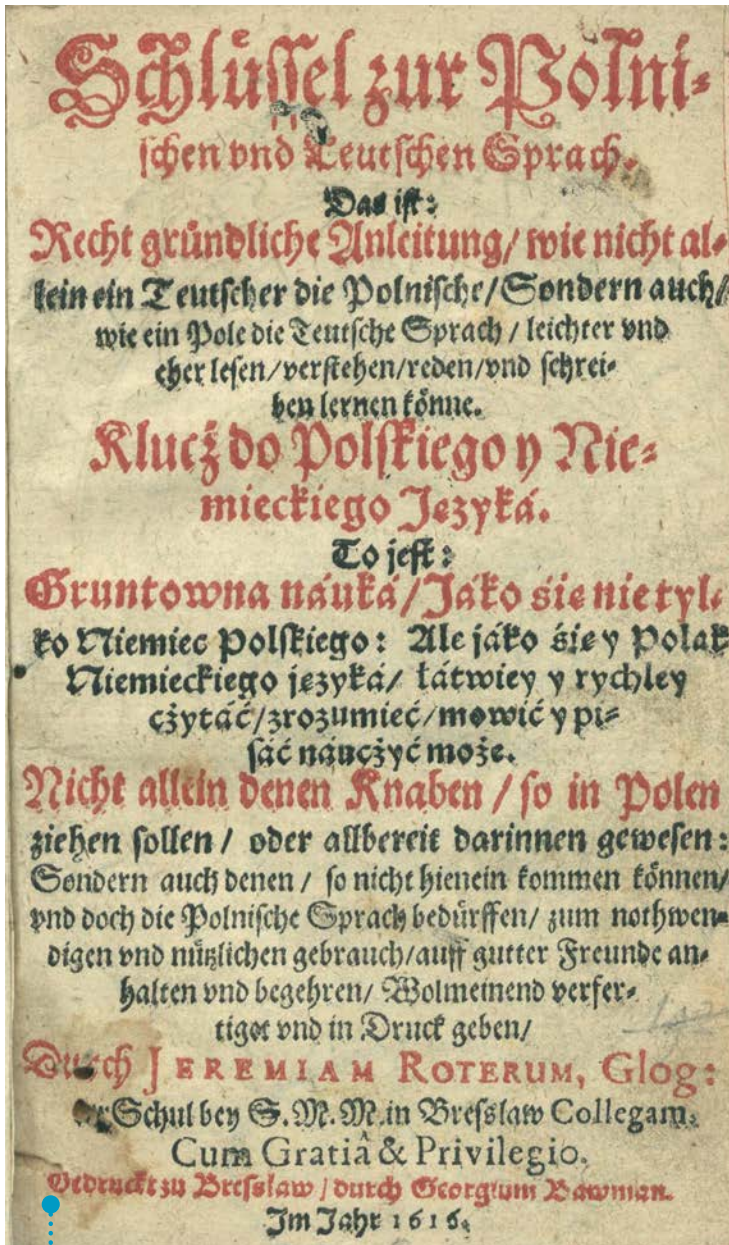 Schlüssel zur Polni-
schen vnd Teutschen Sprach.
Das ist:
Recht gründliche Anleitung/ wie nicht al-
lein ein Teutscher die Polnische/ Sondern auch/
wie ein Pole die Teutsche Sprach / leichter vnd
eher lesen/verstehen/reden/vnd schrei-
ben lernen könne.
Klucż do Polskiego y Nie-
mieckiego Języká.
To jest:
Gruntowna náuká/ Jáko śię nie tyl-
ko Niemiec Polskiego: Ale jáko śię y Polak
Niemieckiego języká/ łátwiey y rychley
cżytáć/zrozumieć/mowić y pi-
sáć náucżyć może.
Nicht allein denen Knaben / so in Polen
ziehen sollen / oder allbereit darinnen gewesen:
Sondern auch denen / so nicht hienein kommen können/
vnd doch die Polnische Sprach bedürffen/ zum nothwen-
digen vnd nützlichen gebrauch/auff gutter Freunde an-
halten vnd begehren/ Wolmeinend verfer-
tiget vnd in Druck geben/
Durch JEREMIAM ROTERUM, Glog:
der Schul bey S. M. M. in Bresslaw Collegam.
Cum Gratiâ & Privilegio.
Gedruckt zu Bresslaw / durch Georgium Bawman.
Im Jahr 1616.